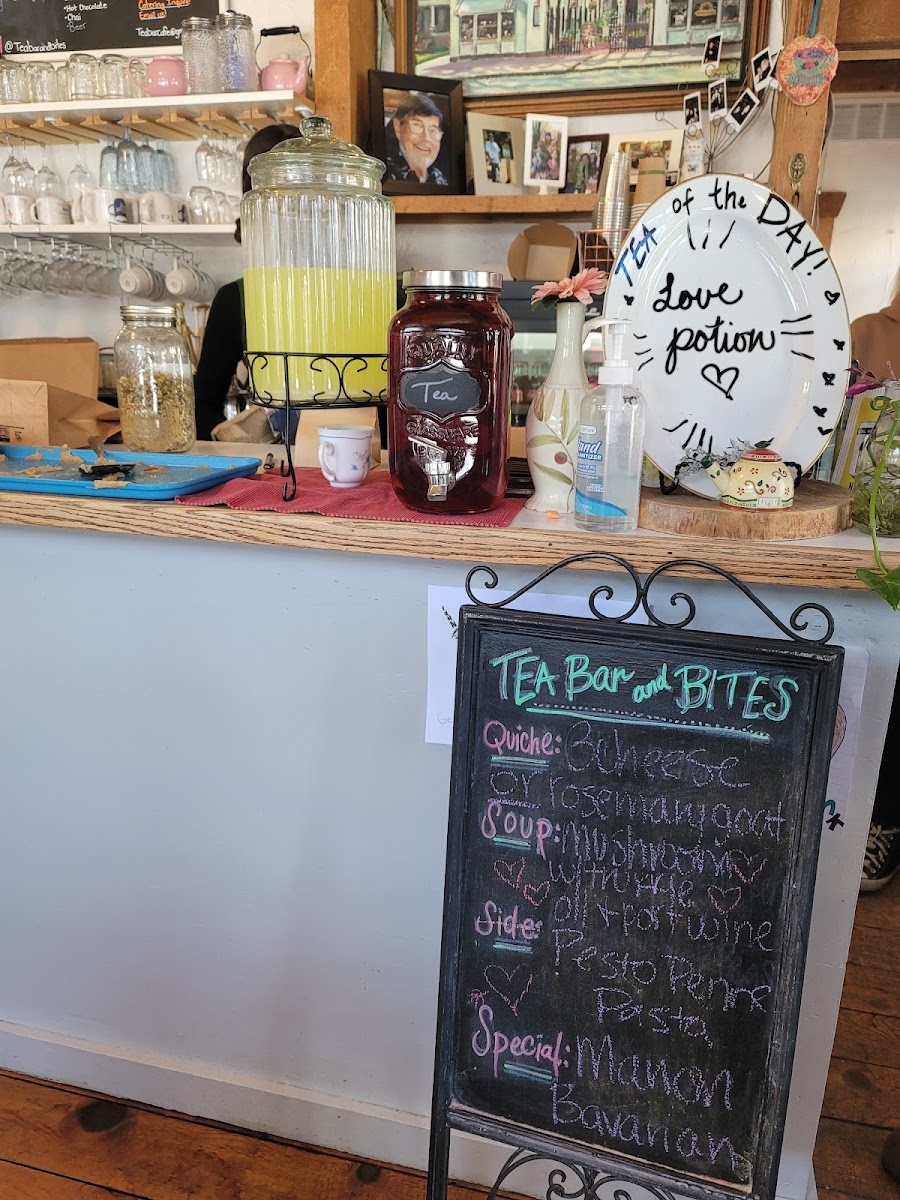 •Hot Chocolate
•Chai
•Beer
@Teabarandbites
Catering Inquiry
Email us!
Tea
TEA of the DAY!
Love
potion
Hand
SANITIZER
TEA Bar and BITES
Quiche: 3 Cheese
or rosemary goat
Soup: Mushroom
with
oil + port wine
Side:
Pesto Penne
Pasta
Special: Manon
Bavarian